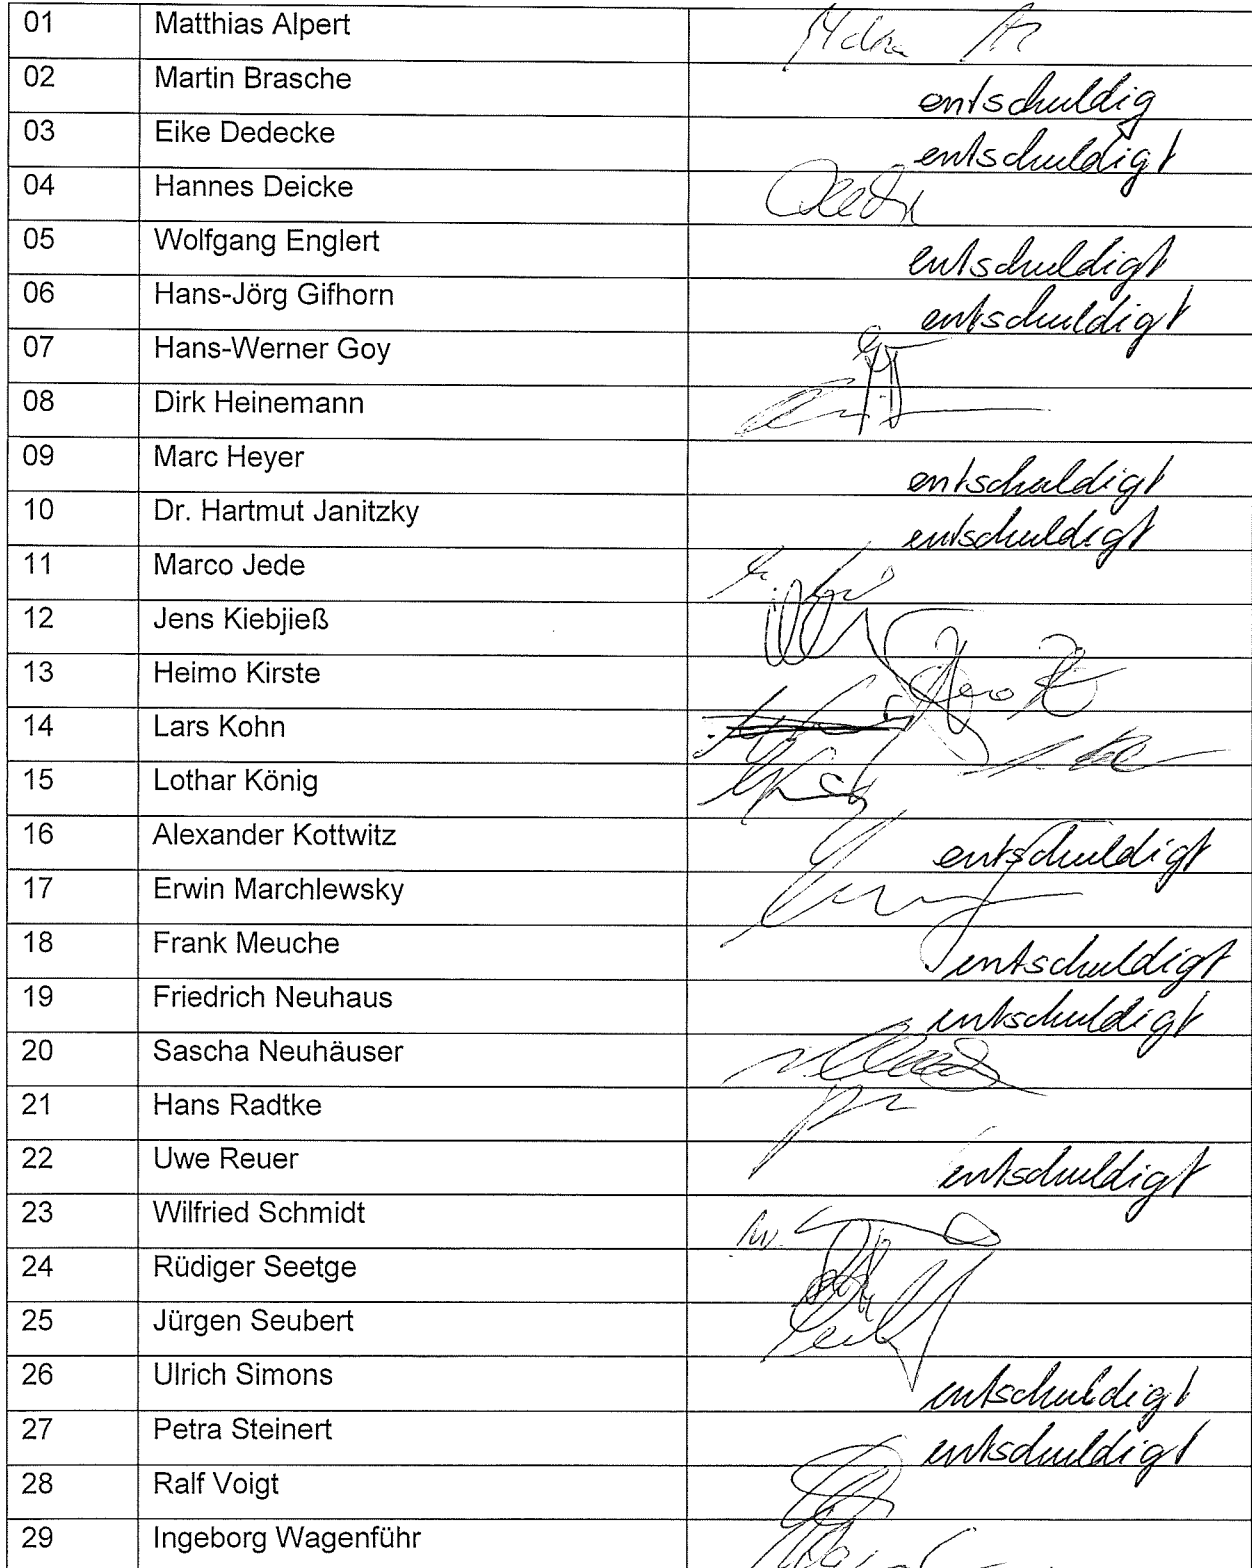 01 Matthias Alpert
02 Martin Brasche entschuldig
03 Eike Dedecke entschuldigt
04 Hannes Deicke
05 Wolfgang Englert entschuldigt
06 Hans-Jörg Gifhorn entschuldigt
07 Hans-Werner Goy
08 Dirk Heinemann
09 Marc Heyer entschuldigt
10 Dr. Hartmut Janitzky entschuldigt
11 Marco Jede
12 Jens Kiebjieß
13 Heimo Kirste
14 Lars Kohn
15 Lothar König
16 Alexander Kottwitz entschuldigt
17 Erwin Marchlewsky
18 Frank Meuche entschuldigt
19 Friedrich Neuhaus entschuldigt
20 Sascha Neuhäuser
21 Hans Radtke
22 Uwe Reuer entschuldigt
23 Wilfried Schmidt
24 Rüdiger Seetge
25 Jürgen Seubert
26 Ulrich Simons entschuldigt
27 Petra Steinert entschuldigt
28 Ralf Voigt
29 Ingeborg Wagenführ